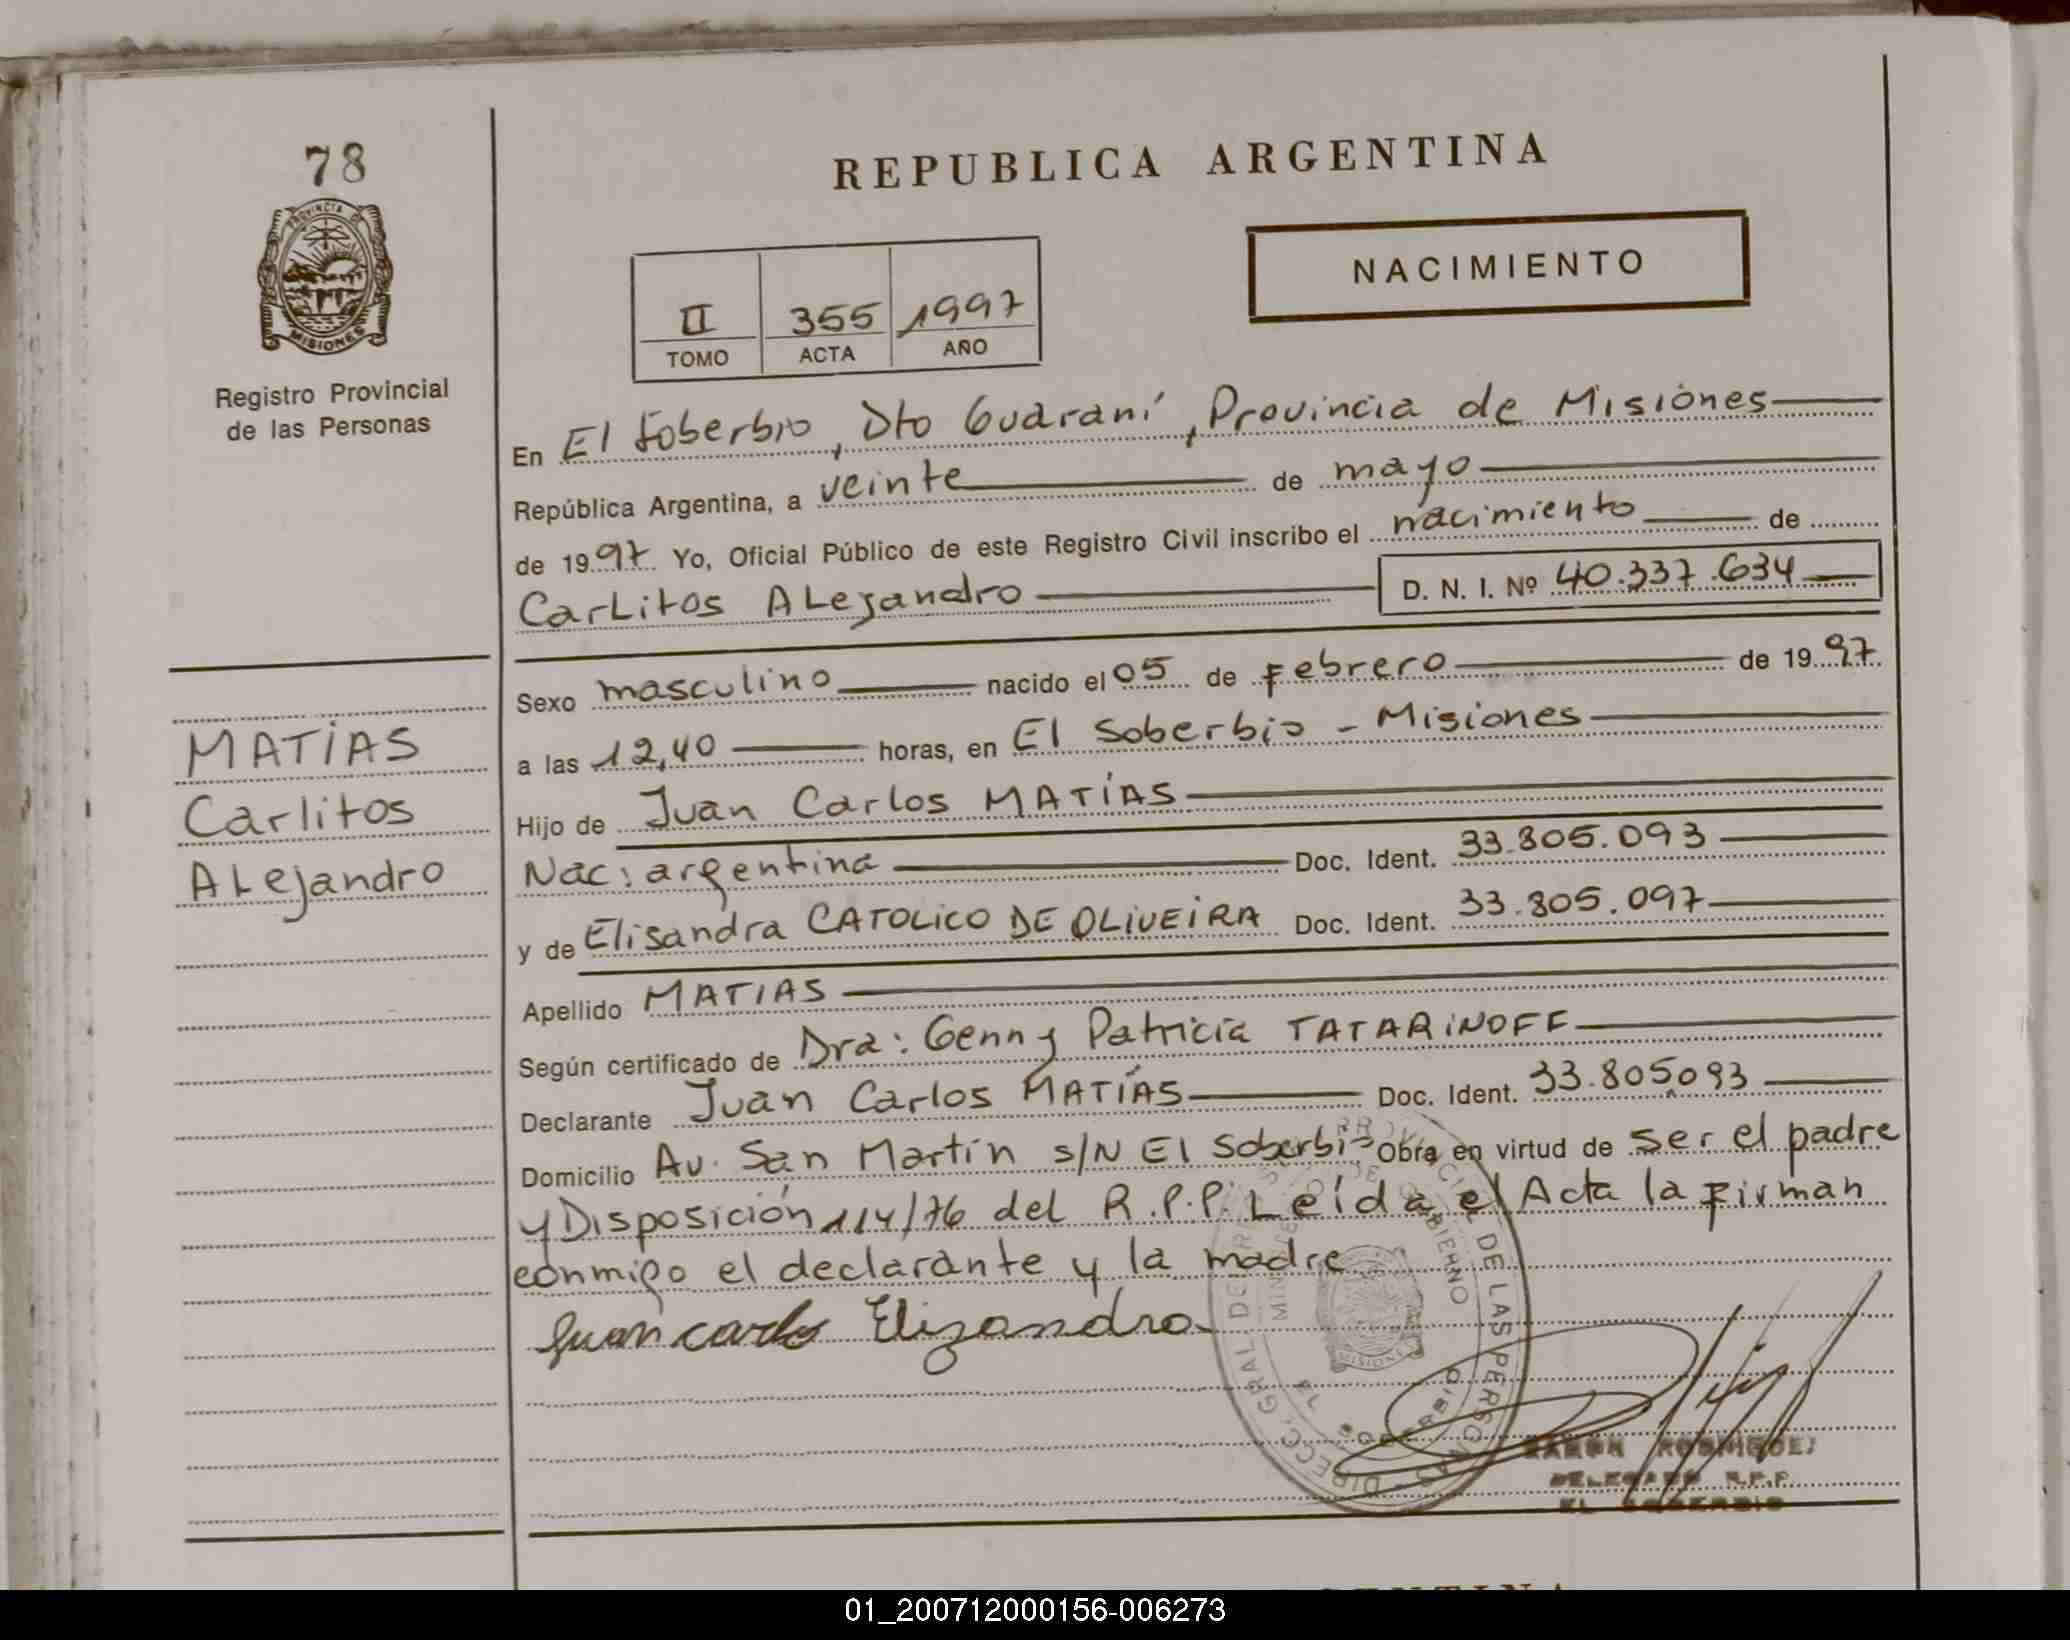 78
PROVINCIA DE
MISIONES
Registro Provincial
de las Personas
REPUBLICA ARGENTINA
NACIMIENTO
II 355 1997
TOMO ACTA AÑO
En El Soberbio, Dto Guaraní, Provincia de Misiones
República Argentina, a veinte de mayo
de 1997 Yo, Oficial Público de este Registro Civil inscribo el nacimiento de
Carlitos Alejandro D. N. I. Nº 40.337.634
Sexo masculino nacido el 05 de Febrero de 1997
a las 12,40 horas, en El Soberbio - Misiones
Hijo de Juan Carlos MATÍAS
Nac: argentina Doc. Ident. 33.805.093
y de Elisandra CATOLICO DE OLIVEIRA Doc. Ident. 33.805.097
Apellido MATIAS
Según certificado de Dra: Genny Patricia TATARINOFF
Declarante Juan Carlos MATÍAS Doc. Ident. 33.805093
Domicilio Av. San Martín s/N El Soberbio Obra en virtud de ser el padre
y Disposición 114/76 del R.P.P. Leída el Acta la Firman
conmigo el declarante y la madre
Juan carlos Elizandra
MATÍAS
Carlitos
Alejandro
DIRECC. GRAL. DEL DE LAS PERSONAS
GOBIERNO
MISIONES
EL SOBERBIO
RAMON RODRIGUEZ
DELEGADO R.P.P.
EL SOBERBIO
01_200712000156-006273